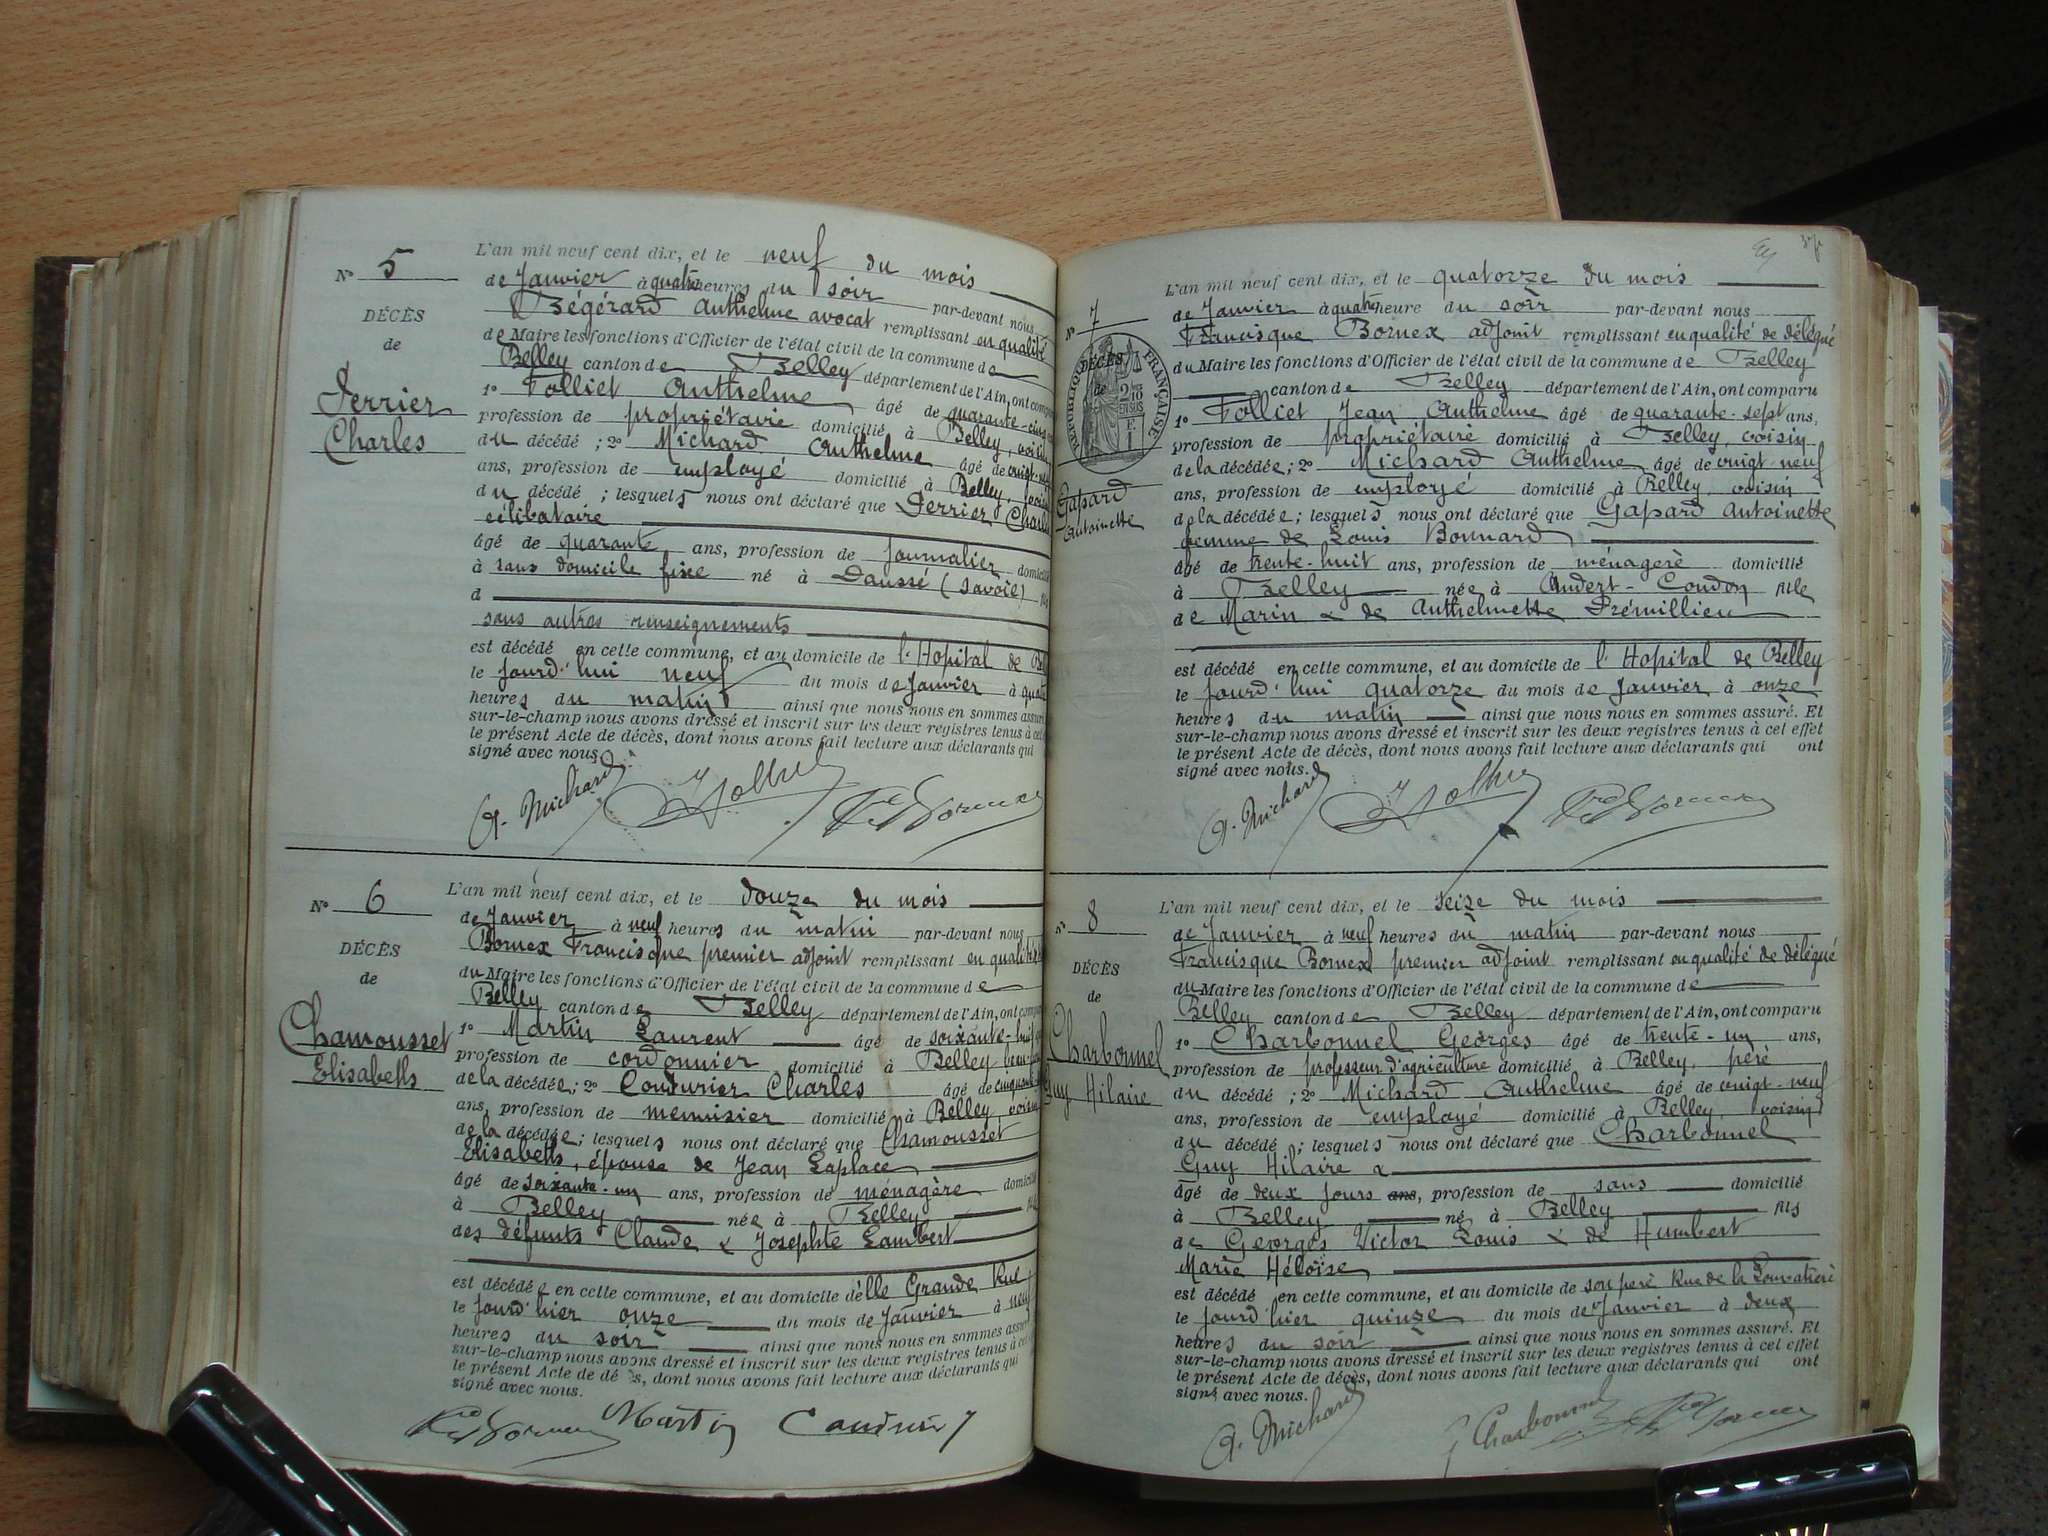 N° 5
DÉCÈS
de
Perrier
Charles
L'an mil neuf cent dix, et le neuf du mois
de Janvier à quatre heures du soir par-devant nous
Bégérard Anthelme avocat remplissant en qualité
de Maire les fonctions d'Officier de l'état civil de la commune de
Belley canton de Belley département de l'Ain, ont comparu
1° Folliet Anthelme âgé de quarante-cinq
profession de propriétaire domicilié à Belley, voisin
du décédé ; 2° Michard Anthelme âgé de vingt-neuf
ans, profession de employé domicilié à Belley, voisin
du décédé ; lesquels nous ont déclaré que Perrier Charles
célibataire
âgé de quarante ans, profession de journalier domicilié
à sans domicile fixe né à Daussé (Savoie) fils
d
sans autres renseignements
est décédé en cette commune, et au domicile de l'Hopital de
le jourd'hui neuf du mois de Janvier à quatre
heures du matin ainsi que nous nous en sommes assuré
sur-le-champ nous avons dressé et inscrit sur les deux registres tenus à cet
le présent Acte de décès, dont nous avons fait lecture aux déclarants qui
signé avec nous.
A. Michard
N° 6
DÉCÈS
de
Chamousset
Elisabeth
L'an mil neuf cent dix, et le douze du mois
de Janvier à neuf heures du matin par-devant nous
Bornex Francisque premier adjoint remplissant en qualité
du Maire les fonctions d'Officier de l'état civil de la commune de
Belley canton de Belley département de l'Ain, ont comparu
1° Martin Laurent âgé de soixante-huit
profession de cordonnier domicilié à Belley
de la décédée ; 2° Coudurier Charles âgé de cinquante
ans, profession de menuisier domicilié à Belley, voisin
de la décédée ; lesquels nous ont déclaré que Chamousset
Elisabeth, épouse de Jean Laplace
âgé de soixante-un ans, profession de ménagère domicilié
à Belley née à Belley
des défunts Claude & Josephte Lambert
est décédée en cette commune, et au domicile d'elle Grande Rue
le jourd'hier onze du mois de Janvier à neuf
heures du soir ainsi que nous nous en sommes assuré
sur-le-champ nous avons dressé et inscrit sur les deux registres tenus à cet
le présent Acte de décès, dont nous avons fait lecture aux déclarants qui
signé avec nous.
Martin
N° 7
DÉCÈS
de
RÉPUBLIQUE FRANÇAISE
Gapard
Antoinette
L'an mil neuf cent dix, et le quatorze du mois
de Janvier à quatre heure du soir par-devant nous
Francisque Bornex adjoint remplissant en qualité de délégué
du Maire les fonctions d'Officier de l'état civil de la commune de Belley
canton de Belley département de l'Ain, ont comparu
1° Folliet Jean Anthelme âgé de quarante-sept ans,
profession de propriétaire domicilié à Belley, voisin
de la décédée ; 2° Michard Anthelme âgé de vingt-neuf
ans, profession de employé domicilié à Belley, voisin
de la décédée ; lesquels nous ont déclaré que Gapard Antoinette
femme de Louis Bonnard
âgé de trente-huit ans, profession de ménagère domicilié
à Belley née à Andert-Condon fille
de Marin & de Anthelmette Prémillieu
est décédé en cette commune, et au domicile de l'Hopital de Belley
le jourd'hui quatorze du mois de Janvier à onze
heures du matin ainsi que nous nous en sommes assuré. Et
sur-le-champ nous avons dressé et inscrit sur les deux registres tenus à cet effet
le présent Acte de décès, dont nous avons fait lecture aux déclarants qui ont
signé avec nous.
A. Michard
N° 8
DÉCÈS
de
Charbonnel
Guy Hilaire
L'an mil neuf cent dix, et le seize du mois
de Janvier à neuf heures du matin par-devant nous
Francisque Bornex premier adjoint remplissant en qualité de délégué
du Maire les fonctions d'Officier de l'état civil de la commune de
Belley canton de Belley département de l'Ain, ont comparu
1° Charbonnel Georges âgé de trente-un ans,
profession de professeur d'agriculture domicilié à Belley, père
du décédé ; 2° Michard Anthelme âgé de vingt-neuf
ans, profession de employé domicilié à Belley, voisin
du décédé ; lesquels nous ont déclaré que Charbonnel
Guy Hilaire
âgé de deux jours ans, profession de sans domicilié
à Belley né à Belley fils
de Georges Victor Louis & de Humbert
Marie Héloïse
est décédé en cette commune, et au domicile de son père Rue de la
le jourd'hier quinze du mois de Janvier à deux
heures du soir ainsi que nous nous en sommes assuré. Et
sur-le-champ nous avons dressé et inscrit sur les deux registres tenus à cet effet
le présent Acte de décès, dont nous avons fait lecture aux déclarants qui ont
signé avec nous.
A. Michard G Charbonnel